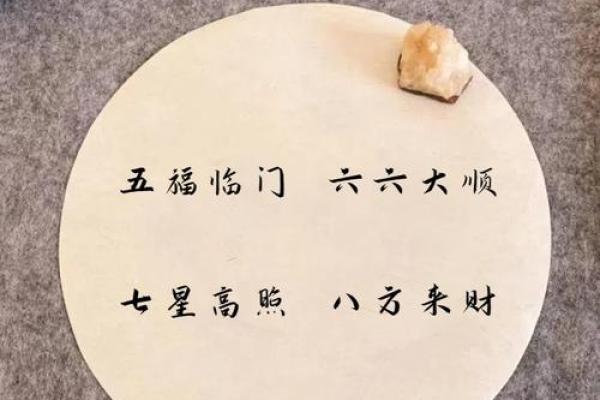 五福临门 六六大顺
七星高照 八方来财